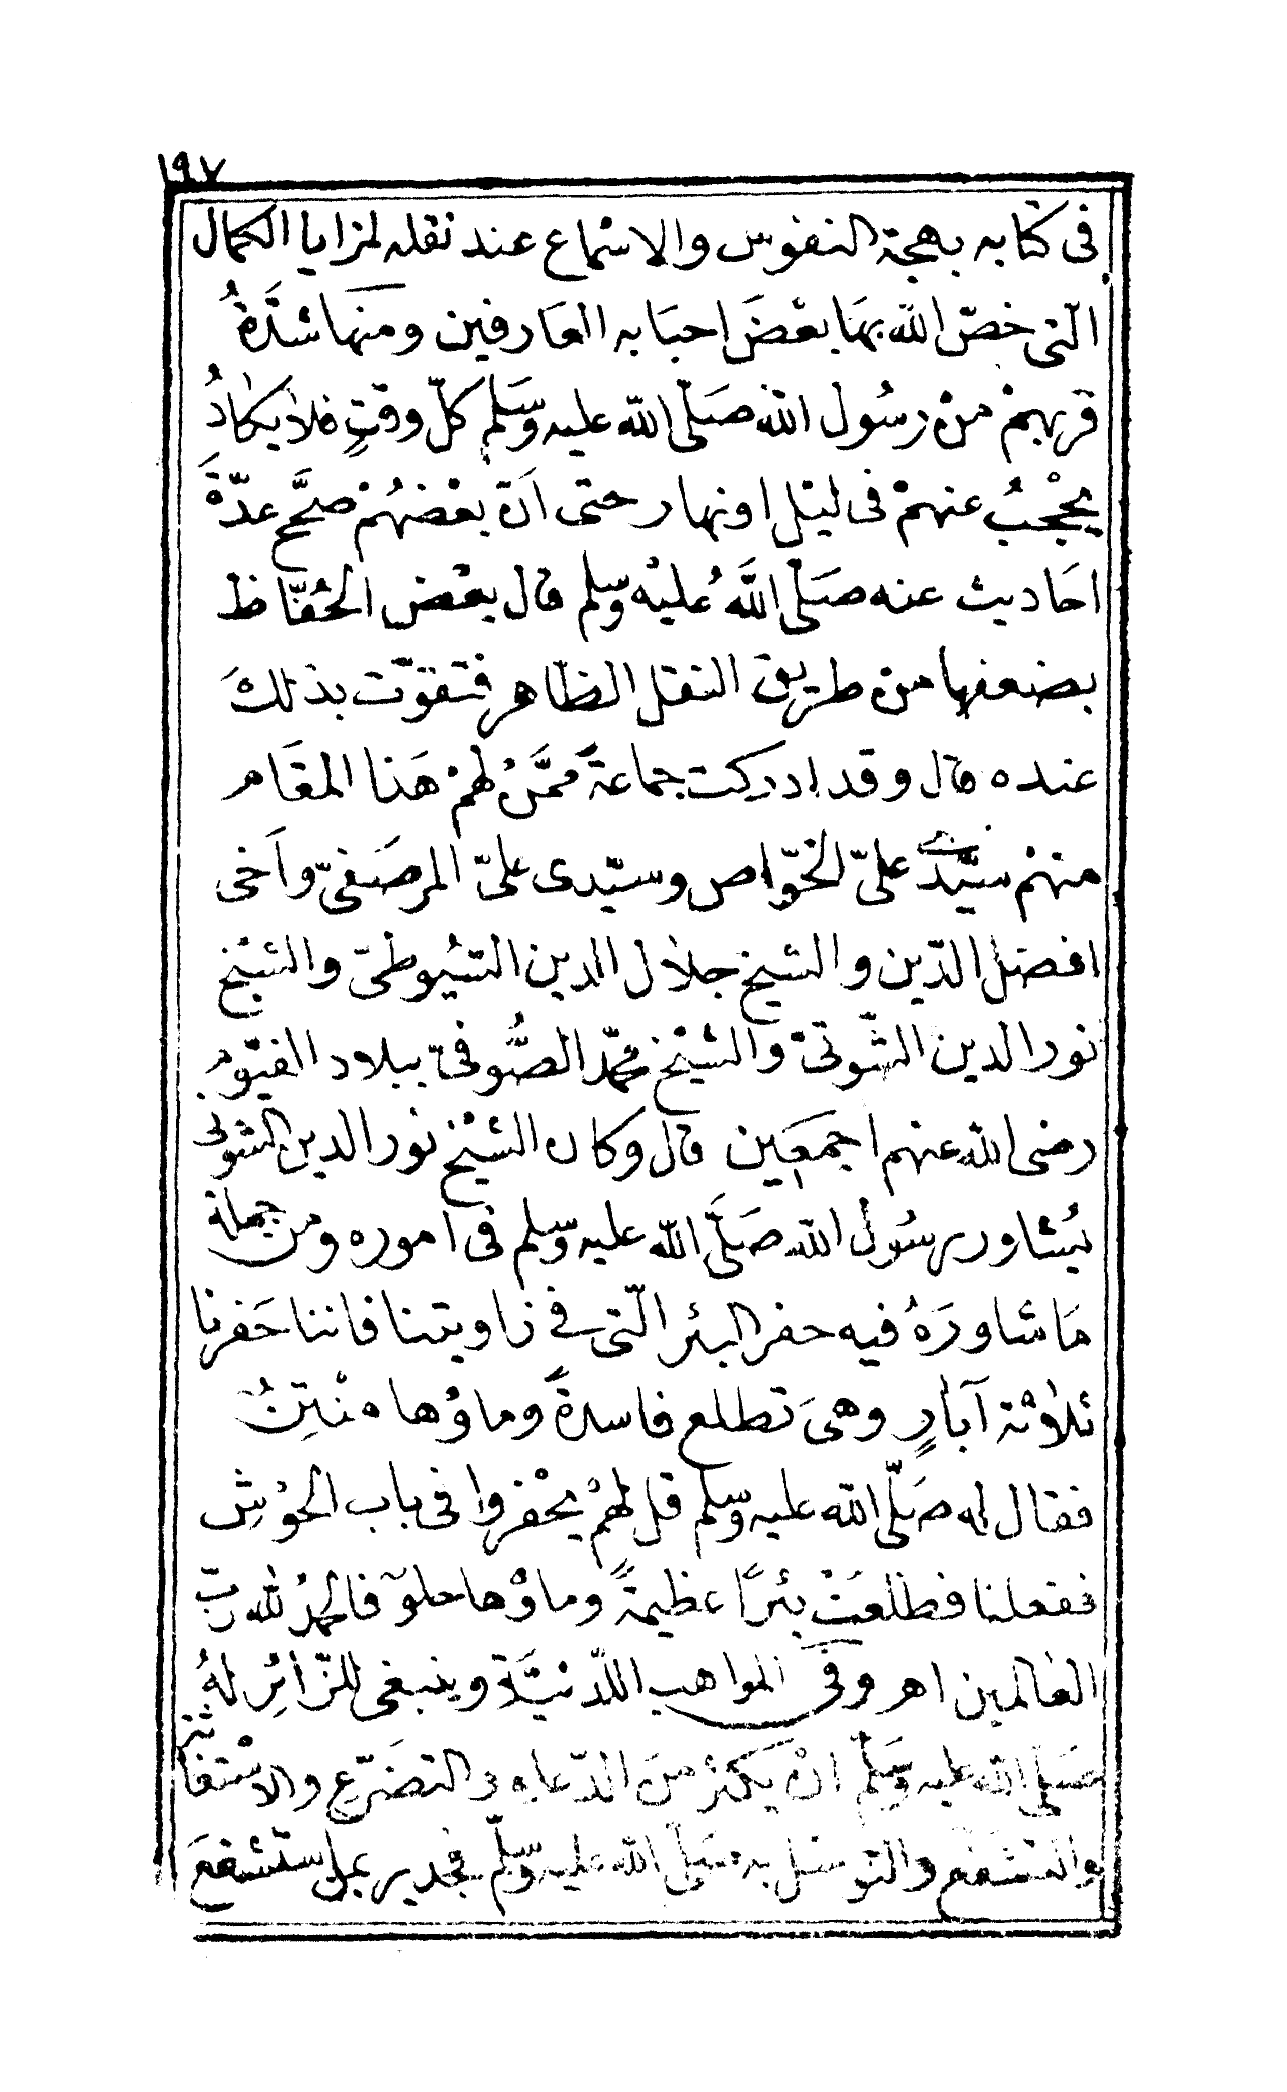 ١٩٧
في كتابه بهجة النفوس والاسماع عند نقله لمزايا الكمال
الّتى خصّ الله بهَا بعْضَ احبَابه العَارفين ومنهَا شدَّةُ
قربهمْ منْ رسُول الله صَلّى الله عليه وسَلّم كلّ وقتٍ فلا يكادُ
يحْجبُ عنهمْ فى ليْل اونهار حتى اَنّ بعْضهُمْ صحَّح عدّةَ
احَاديث عنه صَلّى اللَّهُ عليْه وسلم قال بعْض الحُفّاظ
بضعفها منْ طريق النقل الظاهر فتقوّت بذلكَ
عنده قال وقد ادركت جماعةً ممَّنْ لهمْ هَذا المقَام
منهمْ سيّدى علىّ الخوّاص وسيّدى علىّ المرصَفىّ واَخى
افضل الدّين والشيخ جلال الدين السّيُوطىّ والشيْخ
نور الدين الشّونىْ والشيْخ محمّد الصُّوفىّ ببلاد الفيّوم
رضى الله عنهم اجمَعين قال وكان الشيْخ نور الدين الشونى
يُشاور رسُول الله صَلَّى الله عليه وسلم فى اموره ومن جملة
مَا شاورَهُ فيه حفر البئر الّتى فى زاويتنا فاننا حَفرنا
ثلاثة آبارٍ وهىَ تطلع فاسدةً وماؤُها منْتِنٌ
فقال له صَلّى الله عليه وسلم قل لهمْ يحْفروا فى باب الحوْشِ
ففعلنا فطلعَتْ بئرًا عظيمةً وماؤُها حلو فالحمدُ لله ربّ
العالمين اهـ وفى المواهب اللّدنيَّة وينبغى للزّائِر لهُ
صَلى الله عليه وسَلّم انْ يكثرَ منَ الدّعاء والتضَرّع والاسْتغاثة
والتشفّع والتوسّل به صَلّى الله عليه وسلّم فجدير بمن استشفعَ